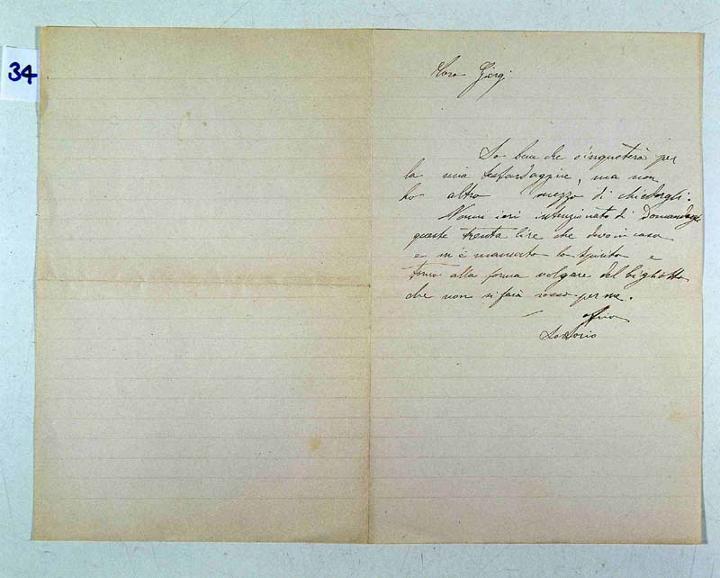 34
Caro Giorgi
So bene che s'inquieterà per
la mia, ma non
ho altro mezzo di chiedergli.
ieri intenzionato di
queste trenta lire che devo in casa
e m'è mancato lo spirito e
torno alla forma volgare del biglietto
che non si farà rosso per me.